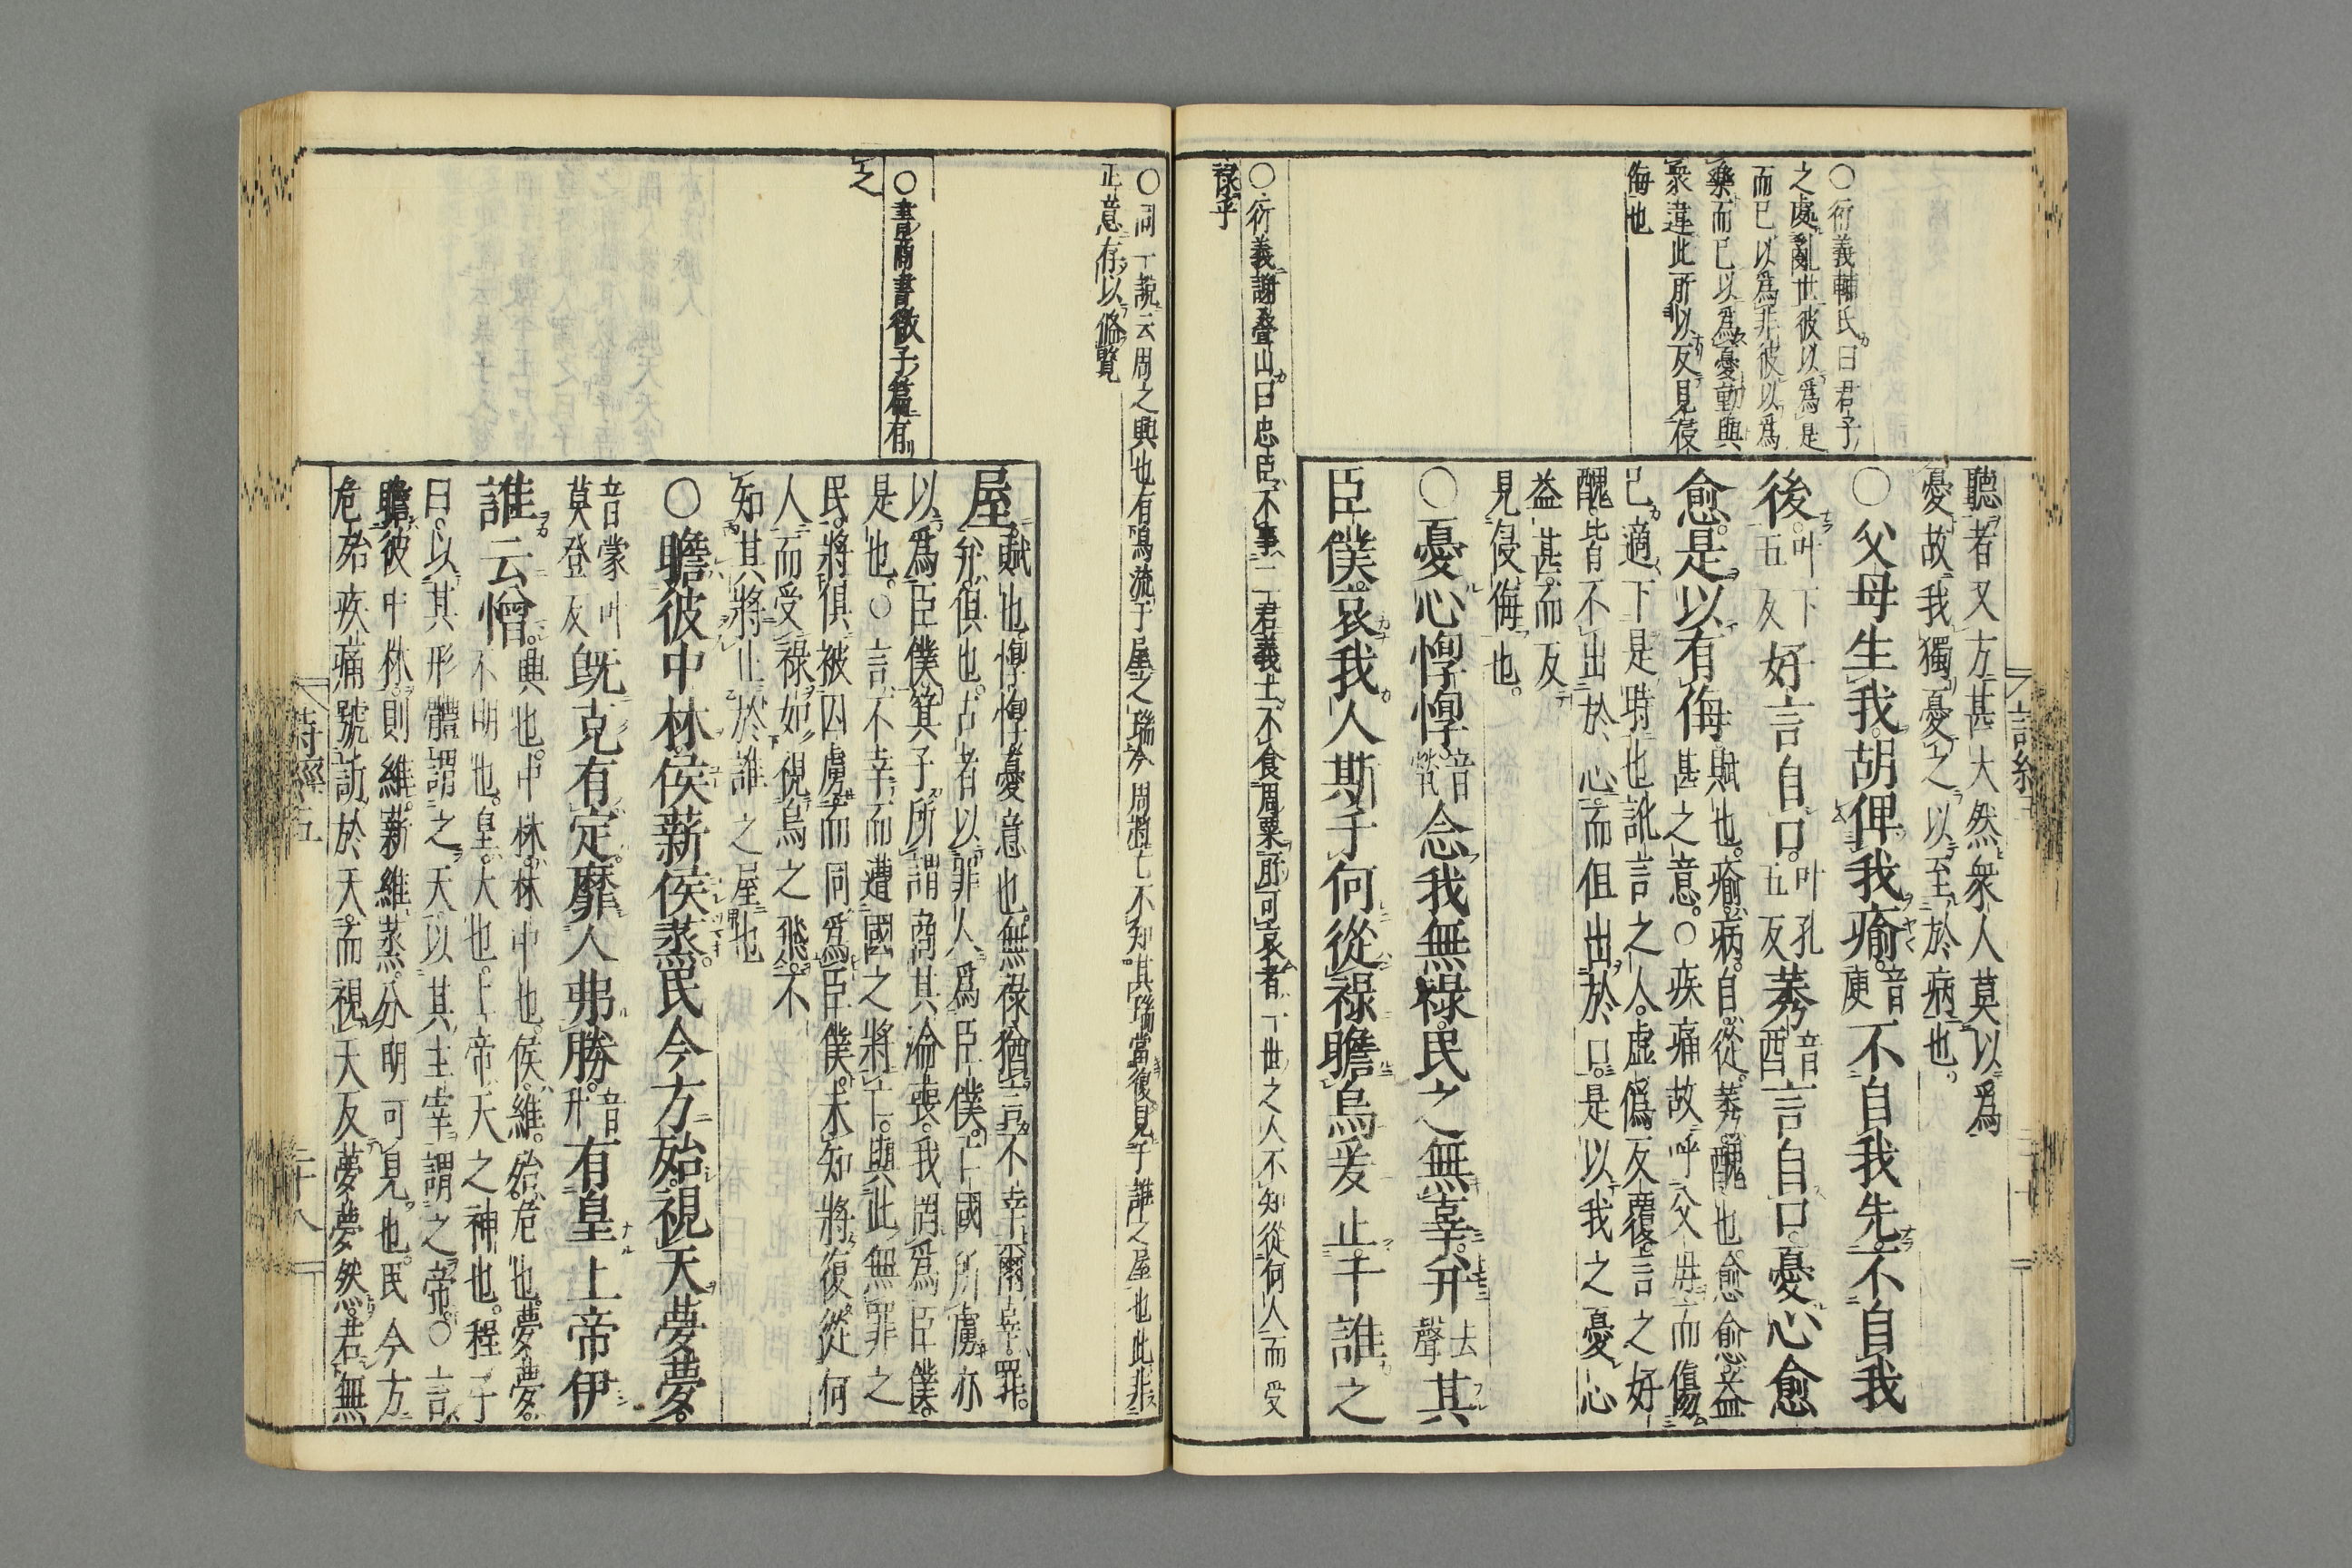 ○衍義輔氏曰君子
之處亂世彼以爲是
而已以爲非彼以爲
樂而已以爲憂動與
衆違此所以反見侵
侮也
聽者又方甚大然衆人莫以爲
憂故我獨憂之以至於病也。
○父母生我。胡俾我瘉。音庾不自我先。不自我
後。叶下五反好言自口。叶孔五反莠音酉言自口。憂心愈
愈。是以有侮賦也。瘉病。自從。莠醜也。愈愈益
甚之意。○疾痛故呼父母。而傷
己適丁是時也訛言之人。虛僞反覆。言之好
醜。皆不出於心。而但出於口。是以我之憂心
益甚。而反
見侵侮也。
○憂心惸惸音煢念我無祿。民之無辜。并去聲其
臣僕。哀我人斯于何從祿瞻烏爰止。于誰之
○衍義謝疊山曰忠臣不事二君義士不食周粟所可哀者一世之人不知從何人而受
祿乎
○同一說云周之興也有烏流于屋之瑞今周將亡不知其瑞當復見于誰之屋也此非
正意存以俻覽
○書商書微子篇有
之
屋賦也。惸惸憂意也。無祿猶言不幸爾辜罪。
并俱也。古者以罪人爲臣僕。亡國所虜亦
以爲臣僕箕子所謂商其淪喪。我罔爲臣僕。
是也。○言不幸而遭國之將亡。與此無罪之
民。將俱被囚虜。而同爲臣僕。未知將復從何
人而受祿。如視烏之飛。不
知其將止於誰之屋也
○瞻彼中林侯薪侯蒸。民今方殆。視天夢夢。
音蒙叶莫登反旣克有定。靡人弗勝。音升有皇上帝伊
誰云憎。興也。中林。林中也。侯。維。殆。危也。夢夢。
不明也。皇。大也。上帝天之神也。程子
曰。以其形體謂之天以其主宰謂之帝。○言
瞻彼中林。則維薪維蒸。分明可見也。民今方
危殆疾痛號訴於天。而視天反夢夢然。若無
詩經五 二十八